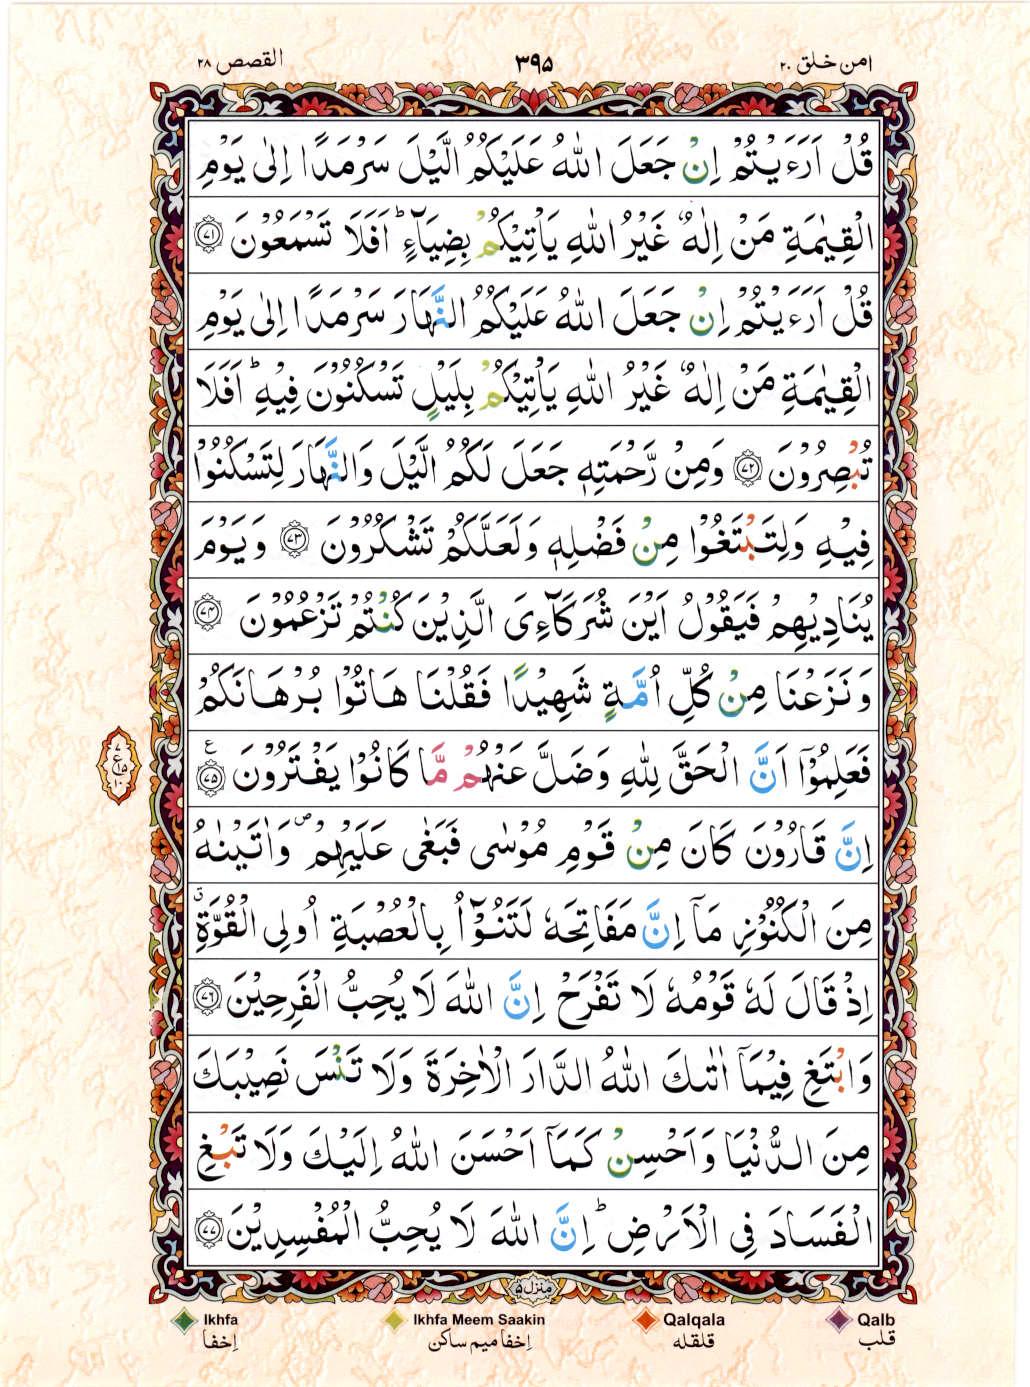 القصص ٢٨
٣٩٥
امن خلق ٢٠
قُلْ اَرَءَيْتُمْ اِنْ جَعَلَ اللّٰهُ عَلَيْكُمُ الَّيْلَ سَرْمَدًا اِلٰى يَوْمِ
الْقِيٰمَةِ مَنْ اِلٰهٌ غَيْرُ اللّٰهِ يَاْتِيْكُمْ بِضِيَآءٍ ؕ اَفَلَا تَسْمَعُوْنَ ﴿٧١﴾
قُلْ اَرَءَيْتُمْ اِنْ جَعَلَ اللّٰهُ عَلَيْكُمُ النَّهَارَ سَرْمَدًا اِلٰى يَوْمِ
الْقِيٰمَةِ مَنْ اِلٰهٌ غَيْرُ اللّٰهِ يَاْتِيْكُمْ بِلَيْلٍ تَسْكُنُوْنَ فِيْهِ ؕ اَفَلَا
تُبْصِرُوْنَ ﴿٧٢﴾ وَمِنْ رَّحْمَتِهٖ جَعَلَ لَكُمُ الَّيْلَ وَالنَّهَارَ لِتَسْكُنُوْا
فِيْهِ وَلِتَبْتَغُوْا مِنْ فَضْلِهٖ وَلَعَلَّكُمْ تَشْكُرُوْنَ ﴿٧٣﴾ وَيَوْمَ
يُنَادِيْهِمْ فَيَقُوْلُ اَيْنَ شُرَكَآءِىَ الَّذِيْنَ كُنْتُمْ تَزْعُمُوْنَ ﴿٧٤﴾
وَنَزَعْنَا مِنْ كُلِّ اُمَّةٍ شَهِيْدًا فَقُلْنَا هَاتُوْا بُرْهَانَكُمْ
فَعَلِمُوْٓا اَنَّ الْحَقَّ لِلّٰهِ وَضَلَّ عَنْهُمْ مَّا كَانُوْا يَفْتَرُوْنَ ﴿٧٥﴾ ع
٧ ع ١٥ ١٠
اِنَّ قَارُوْنَ كَانَ مِنْ قَوْمِ مُوْسٰى فَبَغٰى عَلَيْهِمْ ۖ وَاٰتَيْنٰهُ
مِنَ الْكُنُوْزِ مَآ اِنَّ مَفَاتِحَهٗ لَتَنُوْٓاُ بِالْعُصْبَةِ اُولِى الْقُوَّةِ ۗ
اِذْ قَالَ لَهٗ قَوْمُهٗ لَا تَفْرَحْ اِنَّ اللّٰهَ لَا يُحِبُّ الْفَرِحِيْنَ ﴿٧٦﴾
وَابْتَغِ فِيْمَآ اٰتٰىكَ اللّٰهُ الدَّارَ الْاٰخِرَةَ وَلَا تَنْسَ نَصِيْبَكَ
مِنَ الدُّنْيَا وَاَحْسِنْ كَمَآ اَحْسَنَ اللّٰهُ اِلَيْكَ وَلَا تَبْغِ
الْفَسَادَ فِى الْاَرْضِ ؕ اِنَّ اللّٰهَ لَا يُحِبُّ الْمُفْسِدِيْنَ ﴿٧٧﴾
منزل ٥
Ikhfa
Ikhfa Meem Saakin
Qalqala
Qalb
إخفا
إخفا ميم ساكن
قلقله
قلب